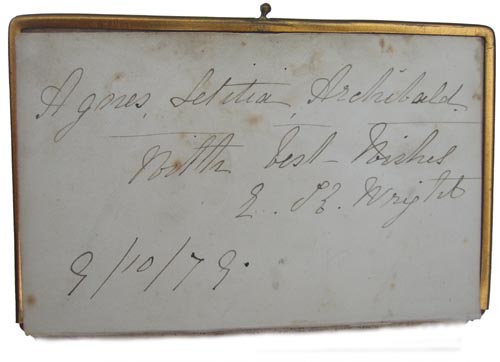 Agnes, Letitia, Archibald.
With best Wishes
E. H. Wright
9/10/79.